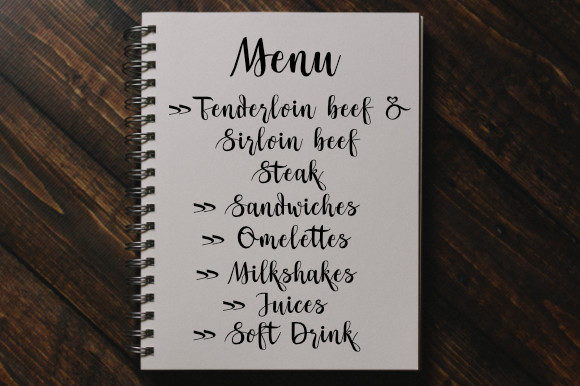 Menu
»Tenderloin beef &
Sirloin beef
Steak
» Sandwiches
» Omelettes
» Milkshakes
» Juices
» Soft Drink